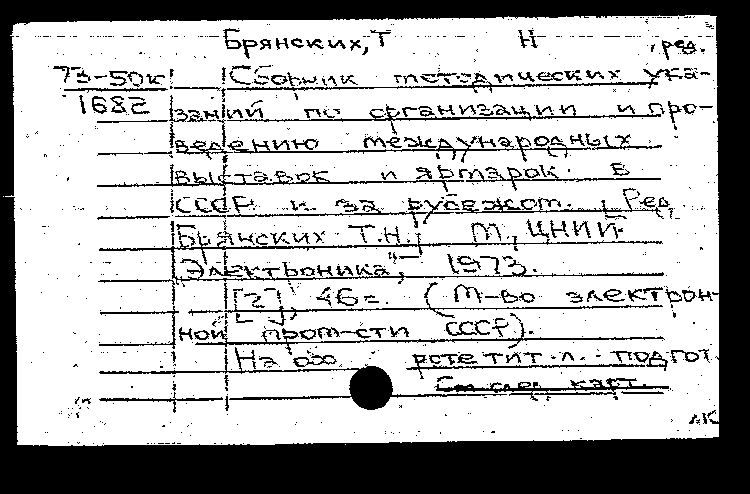 Брянских, Т Н , ред.
73-50к Сборник методических ука-
1682 заний по организации и про-
ведению международных
выставок и ярмарок в
СССР и за рубежом. [Ред.
Брянских Т.Н.] М., ЦНИИ
"Электроника", 1973.
[2], 46 с. (М-во электрон-
ной пром-сти СССР).
На обороте тит. л. подгот.
См след. карт.